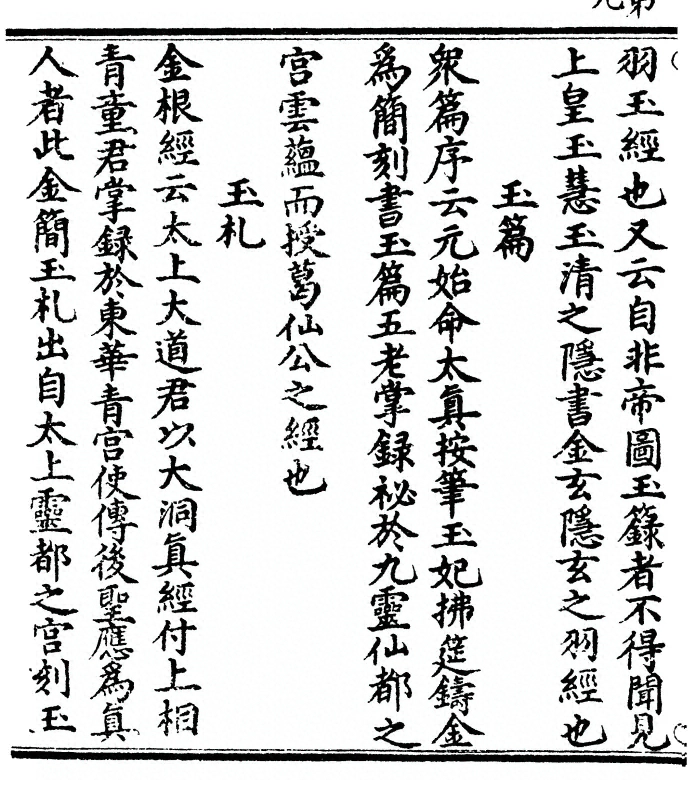 羽玉經也又云自非帝圖玉籙者不得聞見
上皇玉慧玉清之隱書金玄隱玄之羽經也
玉篇
衆篇序云元始命太眞按筆玉妃拂筵鑄金
爲簡刻書玉篇五老掌録祕於九靈仙都之
宫雲蘊而授葛仙公之經也
玉札
金根經云太上大道君以大洞眞經付上相
青童君掌録於東華青宫使傳後聖應爲眞
人者此金簡玉札出自太上靈都之宫刻玉